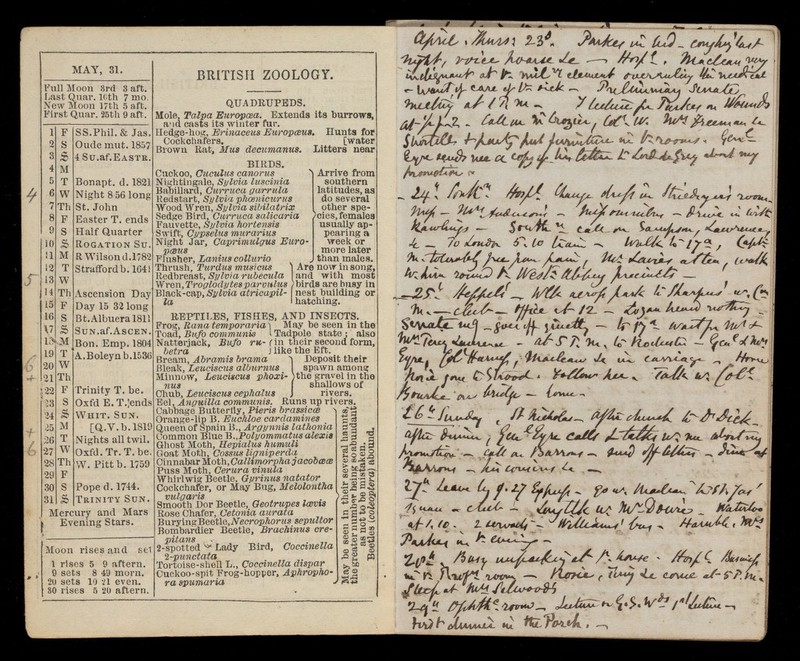 MAY, 31.
Full Moon 3rd 3 aft.
Last Quar. 10th 7 mo.
New Moon 17th 5 aft.
First Quar. 25th 9 aft.
1 F SS.Phil. & Jas.
2 S Oude mut. 1857
3 S 4 SU.af.EASTR.
4 M
5 T Bonapt. d. 1821
6 W Night 8 56 long
7 Th St. John
8 F Easter T. ends
9 S Half Quarter
10 S ROGATION SU.
11 M R Wilson d.1782
12 T Strafford b. 1641
13 W
14 Th Ascension Day
15 F Day 15 32 long
16 S Bt.Albuera 1811
17 S SUN.af.ASCEN.
18 M Bon. Emp. 1804
19 T A.Boleyn b.1536
20 W
21 Th
22 F Trinity T. be.
23 S Oxfd E. T.[ends
24 S WHIT. SUN.
25 M [Q.V. b. 1819
26 T Nights all twil.
27 W Oxfd. Tr. T. be.
28 Th W. Pitt b. 1759
29 F
30 S Pope d. 1744.
31 S TRINITY SUN.
Mercury and Mars
Evening Stars.
Moon rises and set
1 rises 5 9 aftern.
9 sets 8 49 morn.
20 sets 10 21 even.
30 rises 5 20 aftern.
BRITISH ZOOLOGY.
QUADRUPEDS.
Mole, Talpa Europæa. Extends its burrows,
and casts its winter fur.
Hedge-hog, Erinaceus Europæus. Hunts for
Cockchafers. [water
Brown Rat, Mus decumanus. Litters near
BIRDS.
Cuckoo, Cuculus canorus
Nightingale, Sylvia luscinia
Babillard, Curruca garrula
Redstart, Sylvia phœnicurus
Wood Wren, Sylvia sibilatrix
Sedge Bird, Curruca salicaria
Fauvette, Sylvia hortensis
Swift, Cypselus murarius
Night Jar, Caprimulgus Euro-
pæus
Flusher, Lanius collurio
Arrive from
southern
latitudes, as
do several
other spe-
cies, females
usually ap-
pearing a
week or
more later
than males.
Thrush, Turdus musicus
Redbreast, Sylvia rubecula
Wren, Troglodytes parvulus
Black-cap, Sylvia atricapil-
la
Are now in song,
and with most
birds are busy in
nest building or
hatching.
REPTILES, FISHES, AND INSECTS.
Frog, Rana temporaria
Toad, Bufo communis
May be seen in the
Tadpole state; also
Natterjack, Bufo ru-
betra
in their second form,
like the Eft.
Bream, Abramis brama
Bleak, Leuciscus alburnus
Minnow, Leuciscus phoxi-
nus
Chub, Leuciscus cephalus
Deposit their
spawn among
the gravel in the
shallows of
rivers.
Eel, Anguilla communis. Runs up rivers.
Cabbage Butterfly, Pieris brassicæ
Orange-tip B. Euchloe cardamines
Queen of Spain B., Argynnis lathonia
Common Blue B., Polyommatus alexis
Goat Moth, Cossus ligniperda
Ghost Moth, Hepialus humuli
Cinnabar Moth, Callimorpha jacobææ
Puss Moth, Cerura vinula
Whirlwig Beetle, Gyrinus natator
Cockchafer, or May Bug, Melolontha
vulgaris
Smooth Dor Beetle, Geotrupes lævis
Rose Chafer, Cetonia aurata
Burying Beetle, Necrophorus sepultor
Bombardier Beetle, Brachinus cre-
pitans
2-spotted Lady Bird, Coccinella
2-punctata
Tortoise-shell L., Coccinella dispar
Cuckoo-spit Frog-hopper, Aphropho-
ra spumaria
May be seen in their several haunts,
the greater number being so abundant
as not to be mistaken.
Beetles (coleoptera) abound.
April. Thurs: 23d. Parkes in bed - coughing last
night, voice hoarse &c - Hospl. Maclean very
indignant at the mily element overruling the medical
- want of care of the sick - Preliminary Senate
meeting at 1 P.M - I lecture for Parkes on Wounds
at Call on Mrs Crozier, Col. W. Mrs Freeman &c
& party put furniture in the rooms. Genl
Eyre sends me a copy of his letter to Lord de Grey about my
promotion
- 24th Hospl. Change in room
- Mrs Anderson's - Miss - drive in with
Rawlings - South call on Sampson, Lawrence,
&c - To London 5.10 train - Walk to 17a, Capt.
M. tolerably free from pain, Mr Davies often, walk
w. him round the Westr Abbey precincts -
- 25th Heppels - Walk across park to Sharpus' w. Cn
M. - club - Office at 12 - Logan heard nothing -
Senate - goes off quietly - to 17a wait for Mr &
Mrs Percy Lawrence - at 5 P.M. to Rochester - Genl & Mrs
Eyre, Col Harvey, Maclean &c in carriage - Home
gone to Strood. Follow her. Talk w. Col.
Bourke on bridge - home -
26th Sunday, St Nicholas - after church to Dr Dick -
after dinner, Genl Eyre calls & talks w. me about my
promotion - call on Barrons - send off letters - dine at
Barrons - his cousins &c -
27th Leave by 9.27 Express - go w. Maclean to St Jas'
Square - club - w. Mr Dowse - Waterloo
at 1.10. 2 servants - Williams' bus - Hamble. Mrs
Parkes in the evening -
28th Busy unpacking at the house - Hospl Business
in the Profrs room - Rosie, &c come at 5 P.M.
Sleep at Mrs Selwoods
29th Ophthc room - Lecture on G.S.Wds 1st Lecture -
First dinner in the Porch. -